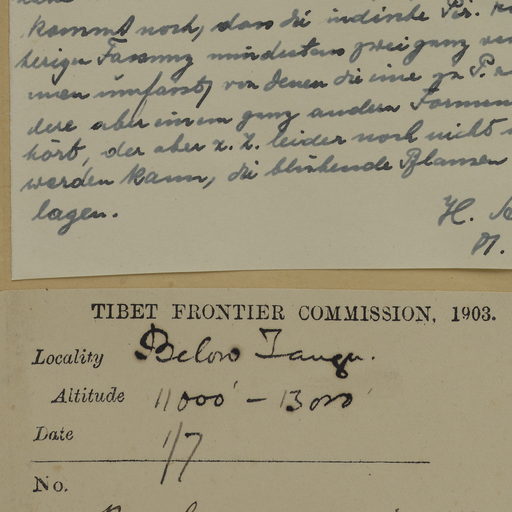 kommt noch, dass die indische Pir.
herigen Fassung mindestens zwei ganz
men umfasst, von denen die eine zu P.
dere aber einem ganz andern Formen
hört, der aber z. Z. leider noch nicht
werden kann, die blühende Pflanzen
lagen.
H.
TIBET FRONTIER COMMISSION, 1903.
Locality Below Tangu.
Altitude 11000' – 13000'
Date 1/7
No.